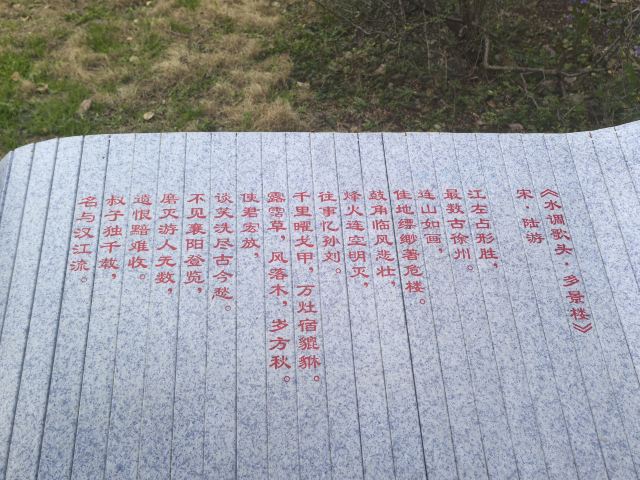 《水调歌头·多景楼》
宋·陆游
江左占形胜，
最数古徐州。
连山如画，
佳地缥缈著危楼。
鼓角临风悲壮，
烽火连空明灭，
往事忆孙刘。
千里曜戈甲，万灶宿貔貅。
露霑草，风落木，岁方秋。
使君宏放，
谈笑洗尽古今愁。
不见襄阳登览，
磨灭游人无数，
遗恨黯难收。
叔子独千载，
名与汉江流。